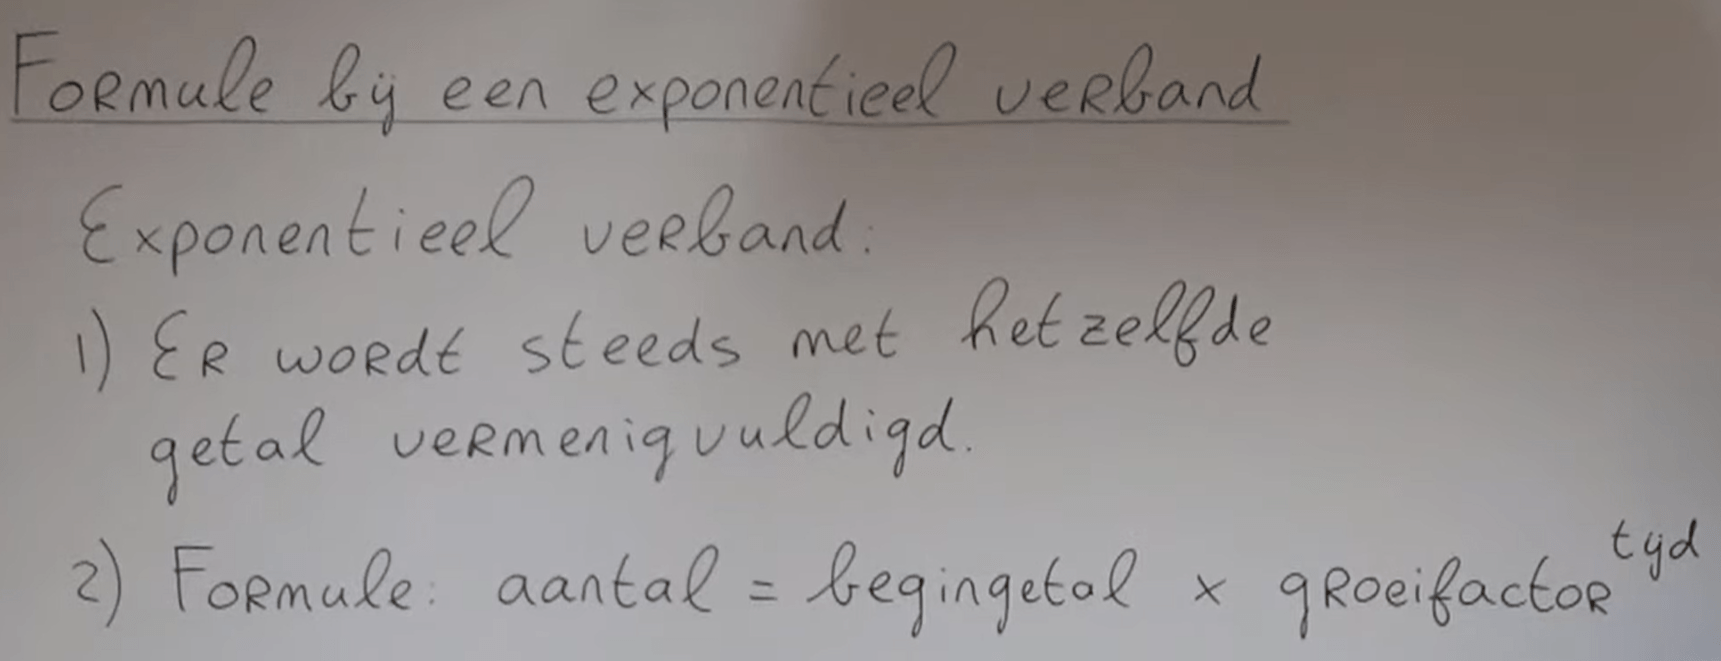 Formule bij een exponentieel verband
Exponentieel verband:
1) Er wordt steeds met hetzelfde
getal vermenigvuldigd.
2) Formule: aantal = begingetal × groeifactor^tijd